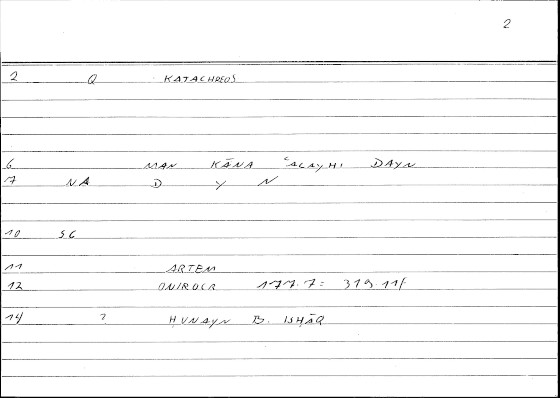 2
2 Q KATACHREOS
6 MAN KĀNA ʿALAYHI DAYN
7 NA D Y N
10 SG
11 ARTEM
12 ONIROCR 177.7: 319.11f
14 ? ḤUNAYN B. ISḤĀQ